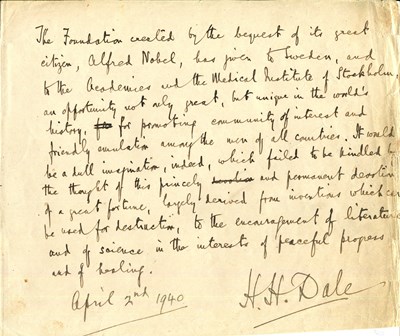 The Foundation created by the bequest of its great
citizen, Alfred Nobel, has given to Sweden, and
to the Academies and the Medical Institute of Stockholm,
an opportunity not only great, but unique in the world's
history, for promoting community of interest and
friendly emulation among the men of all countries. It would
be a dull imagination, indeed, which failed to be kindled by
the thought of this princely devotion and permanent devotion
of a great fortune, largely derived from inventions which can
be used for destruction, to the encouragement of literature
and of science in the interests of peaceful progress
and of healing.
April 2nd 1940
H. H. Dale